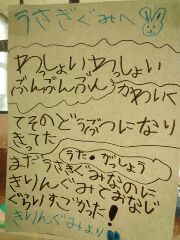 うさぎぐみへ
わっしょいわっしょい
ぶんぶんぶん かわいく
てそのどうぶつになり
きってた
うた・がっしょう
まだうさぎぐみなのに
きりんぐみとおなじ
ぐらいすごかった!
きりんぐみより